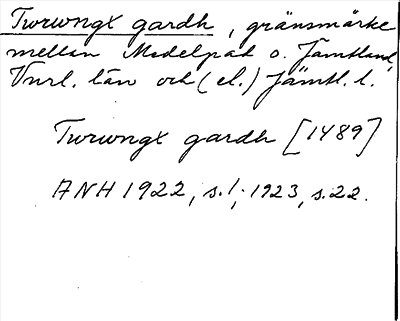 Twrwngx gardh, gränsmärke
mellan Medelpad o. Jämtland,
Vnrl. län och (el.) Jämtl. l.
Twrwngx gardh [1489]
ANH 1922, s. 1; 1923, s. 22.